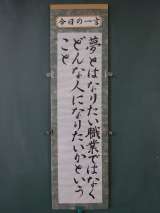 今日の一言
夢とはなりたい職業ではなく
どんな人になりたいかという
こと